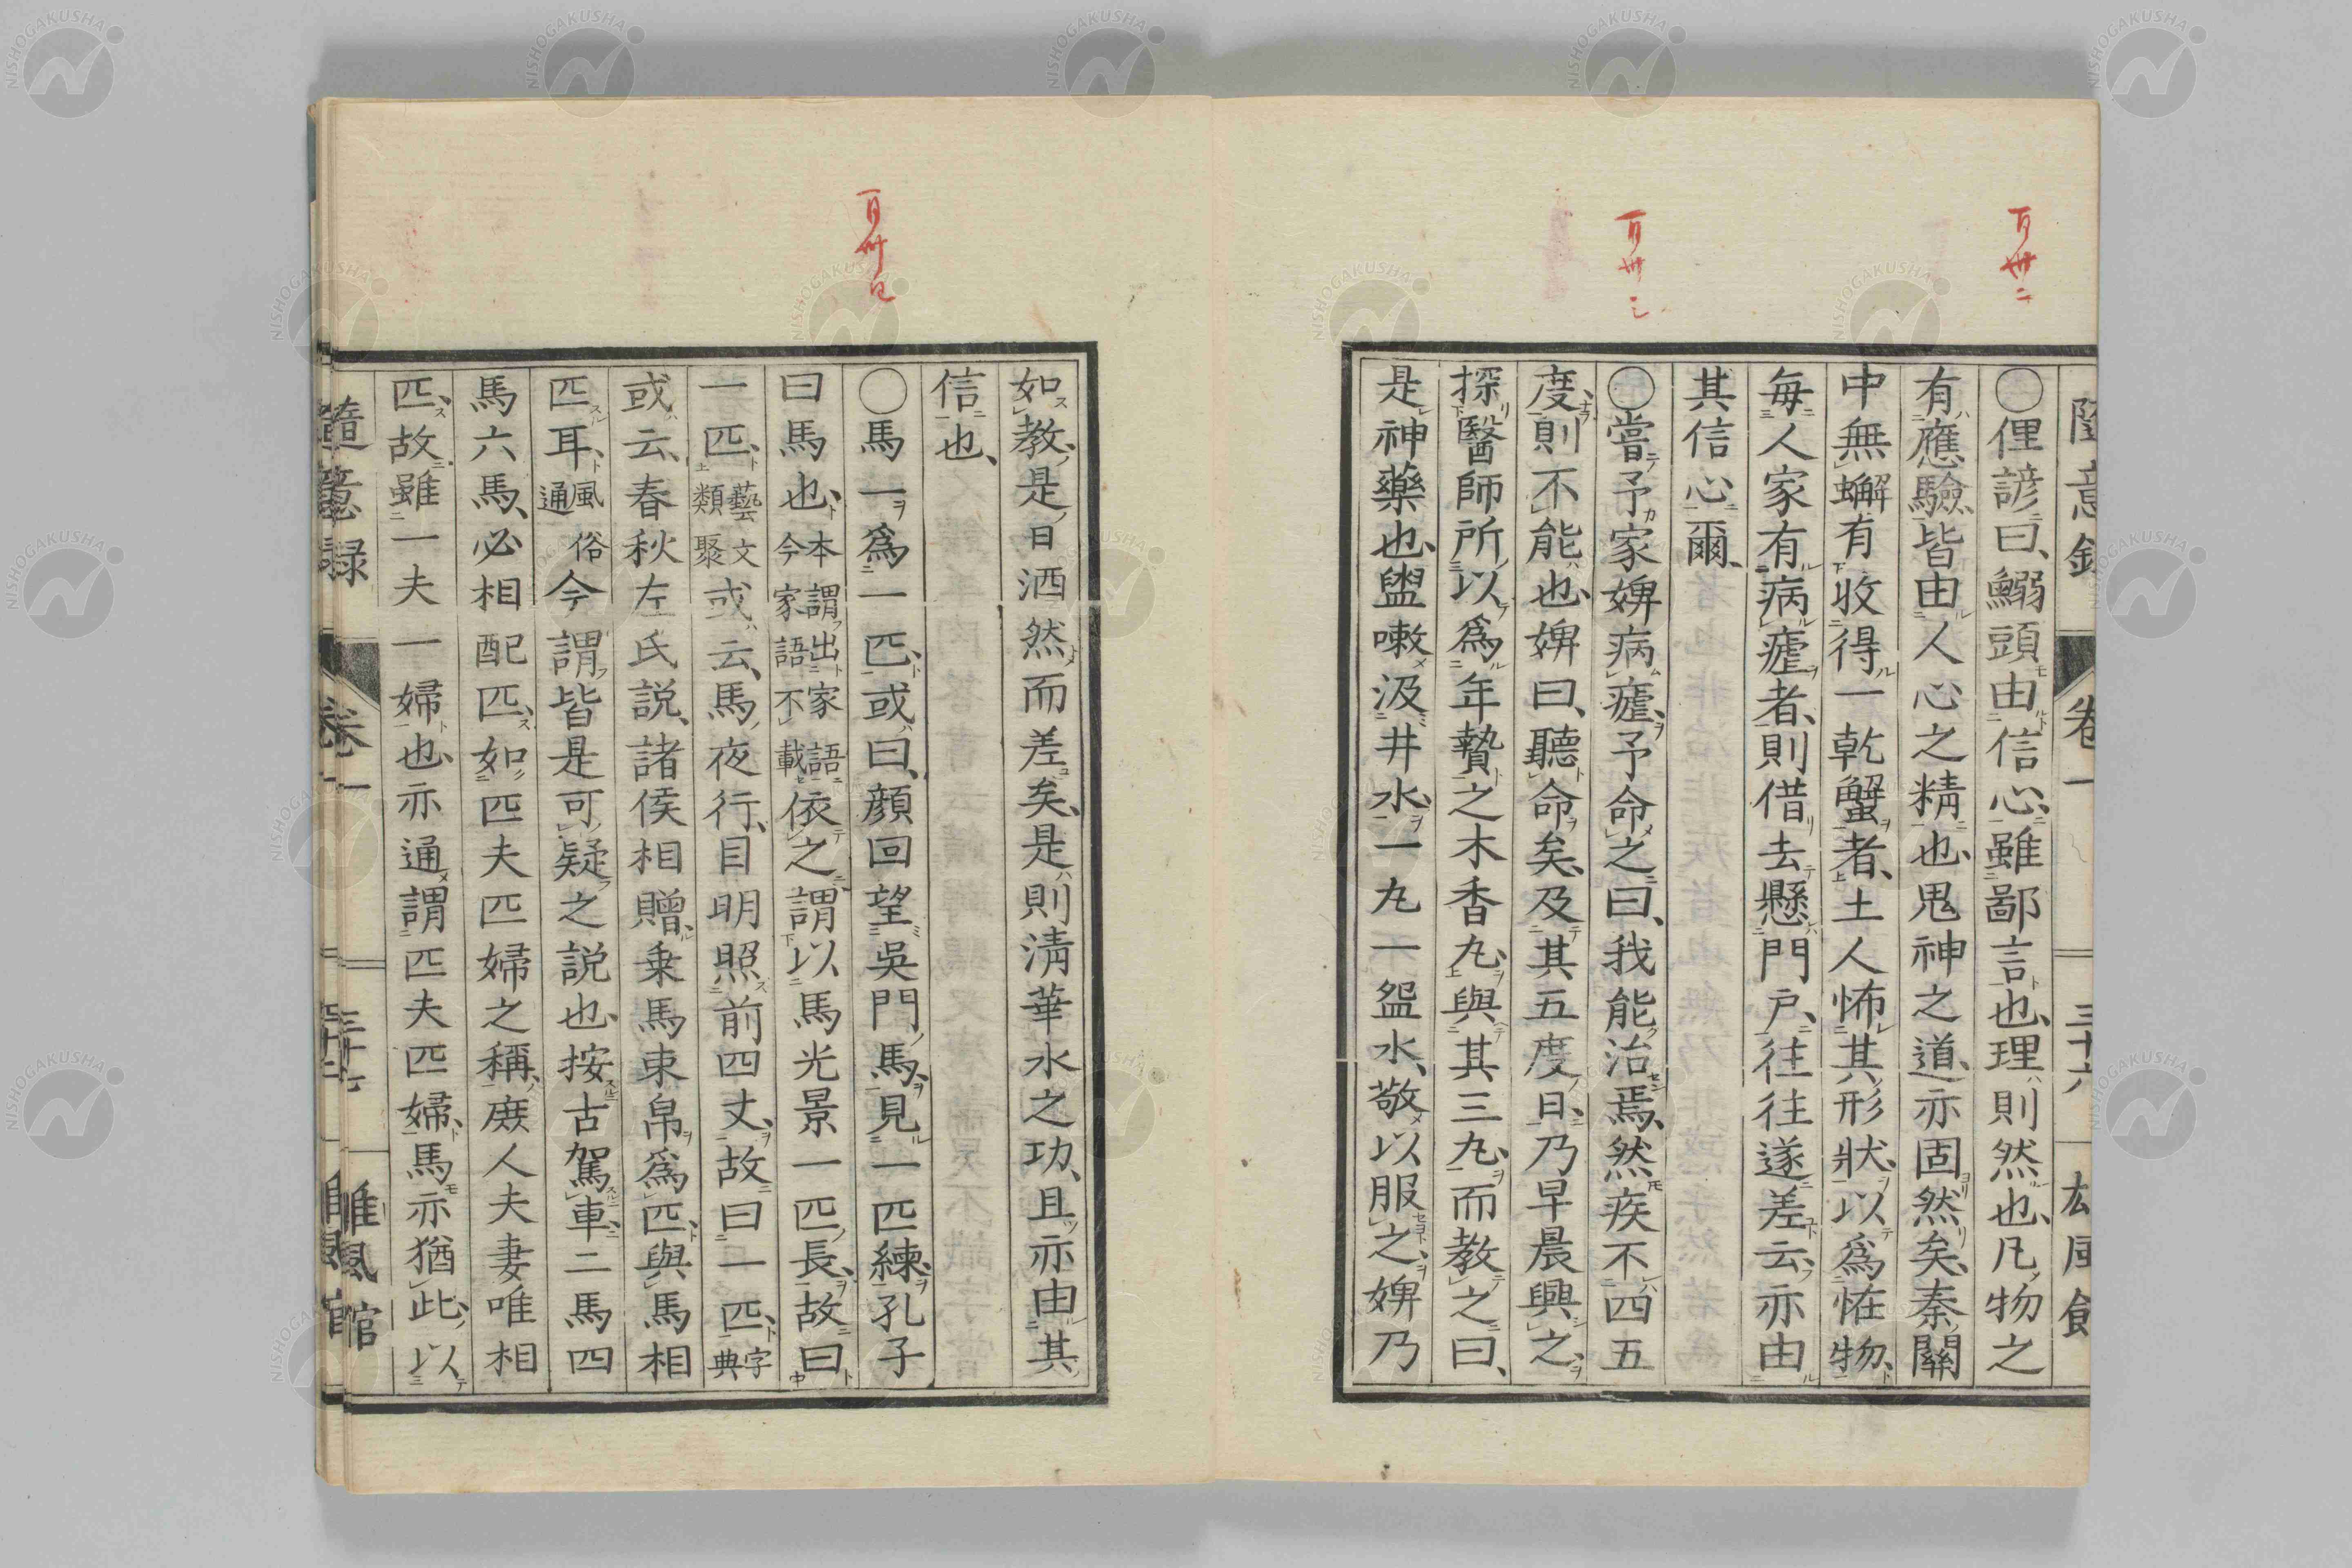 百卌二
百卌三
隨意錄 卷一 三十六
〇俚諺曰、鰯頭由信心、雖鄙言也、理則然也、凡物之
有應驗、皆由人心之精也、鬼神之道、亦固然矣、秦關
中無蠏有收得一乾蟹者、土人怖其形狀、以爲恠物、
每人家有病瘧者、則借去懸門戶、往往遂差云、亦由
其信心爾、
〇嘗予家婢病瘧、予命之曰、我能治焉、然疾不四五
度、則不能也、婢曰、聽命矣、及其五度日、乃早晨興之、
探醫師所以爲年贄之木香丸、與其三丸、而教之曰、
是神藥也、盥嗽汲井水、一丸一盌水、敬以服之、婢乃
百卌四
如教、是日洒然而差矣、是則淸華水之功、且亦由其
信也、
〇馬一爲一匹、或曰、顏回望吳門馬、見一匹練、孔子
曰馬也、本謂出家語今家語不載依之謂以馬光景一匹長、故曰
一匹、藝文類聚或云、馬夜行、目明照前四丈、故曰一匹、字典
或云、春秋左氏說、諸侯相贈、乗馬束帛爲匹、與馬相
匹耳、風俗通今謂皆是可疑之說也、按古駕車、二馬四
馬六馬、必相配匹、如匹夫匹婦之稱、庶人夫妻唯相
匹、故雖一夫一婦也、亦通謂匹夫匹婦、馬亦猶此、以
隨意錄 卷一 三十七 雖風館